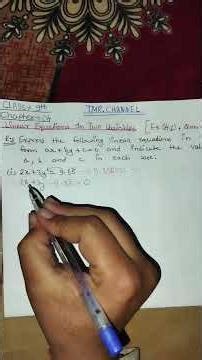 CLASS:- 9th
TMR CHANNEL
Chapter:- 04
Linear Equations In Two Variables [Ex:-4.1, Ques
Express the following linear equations in
form ax+by+c=0 and indicate the val
a, b and c in each case:
(i) 2x+3y=9.35
2x+3y-9.35=0